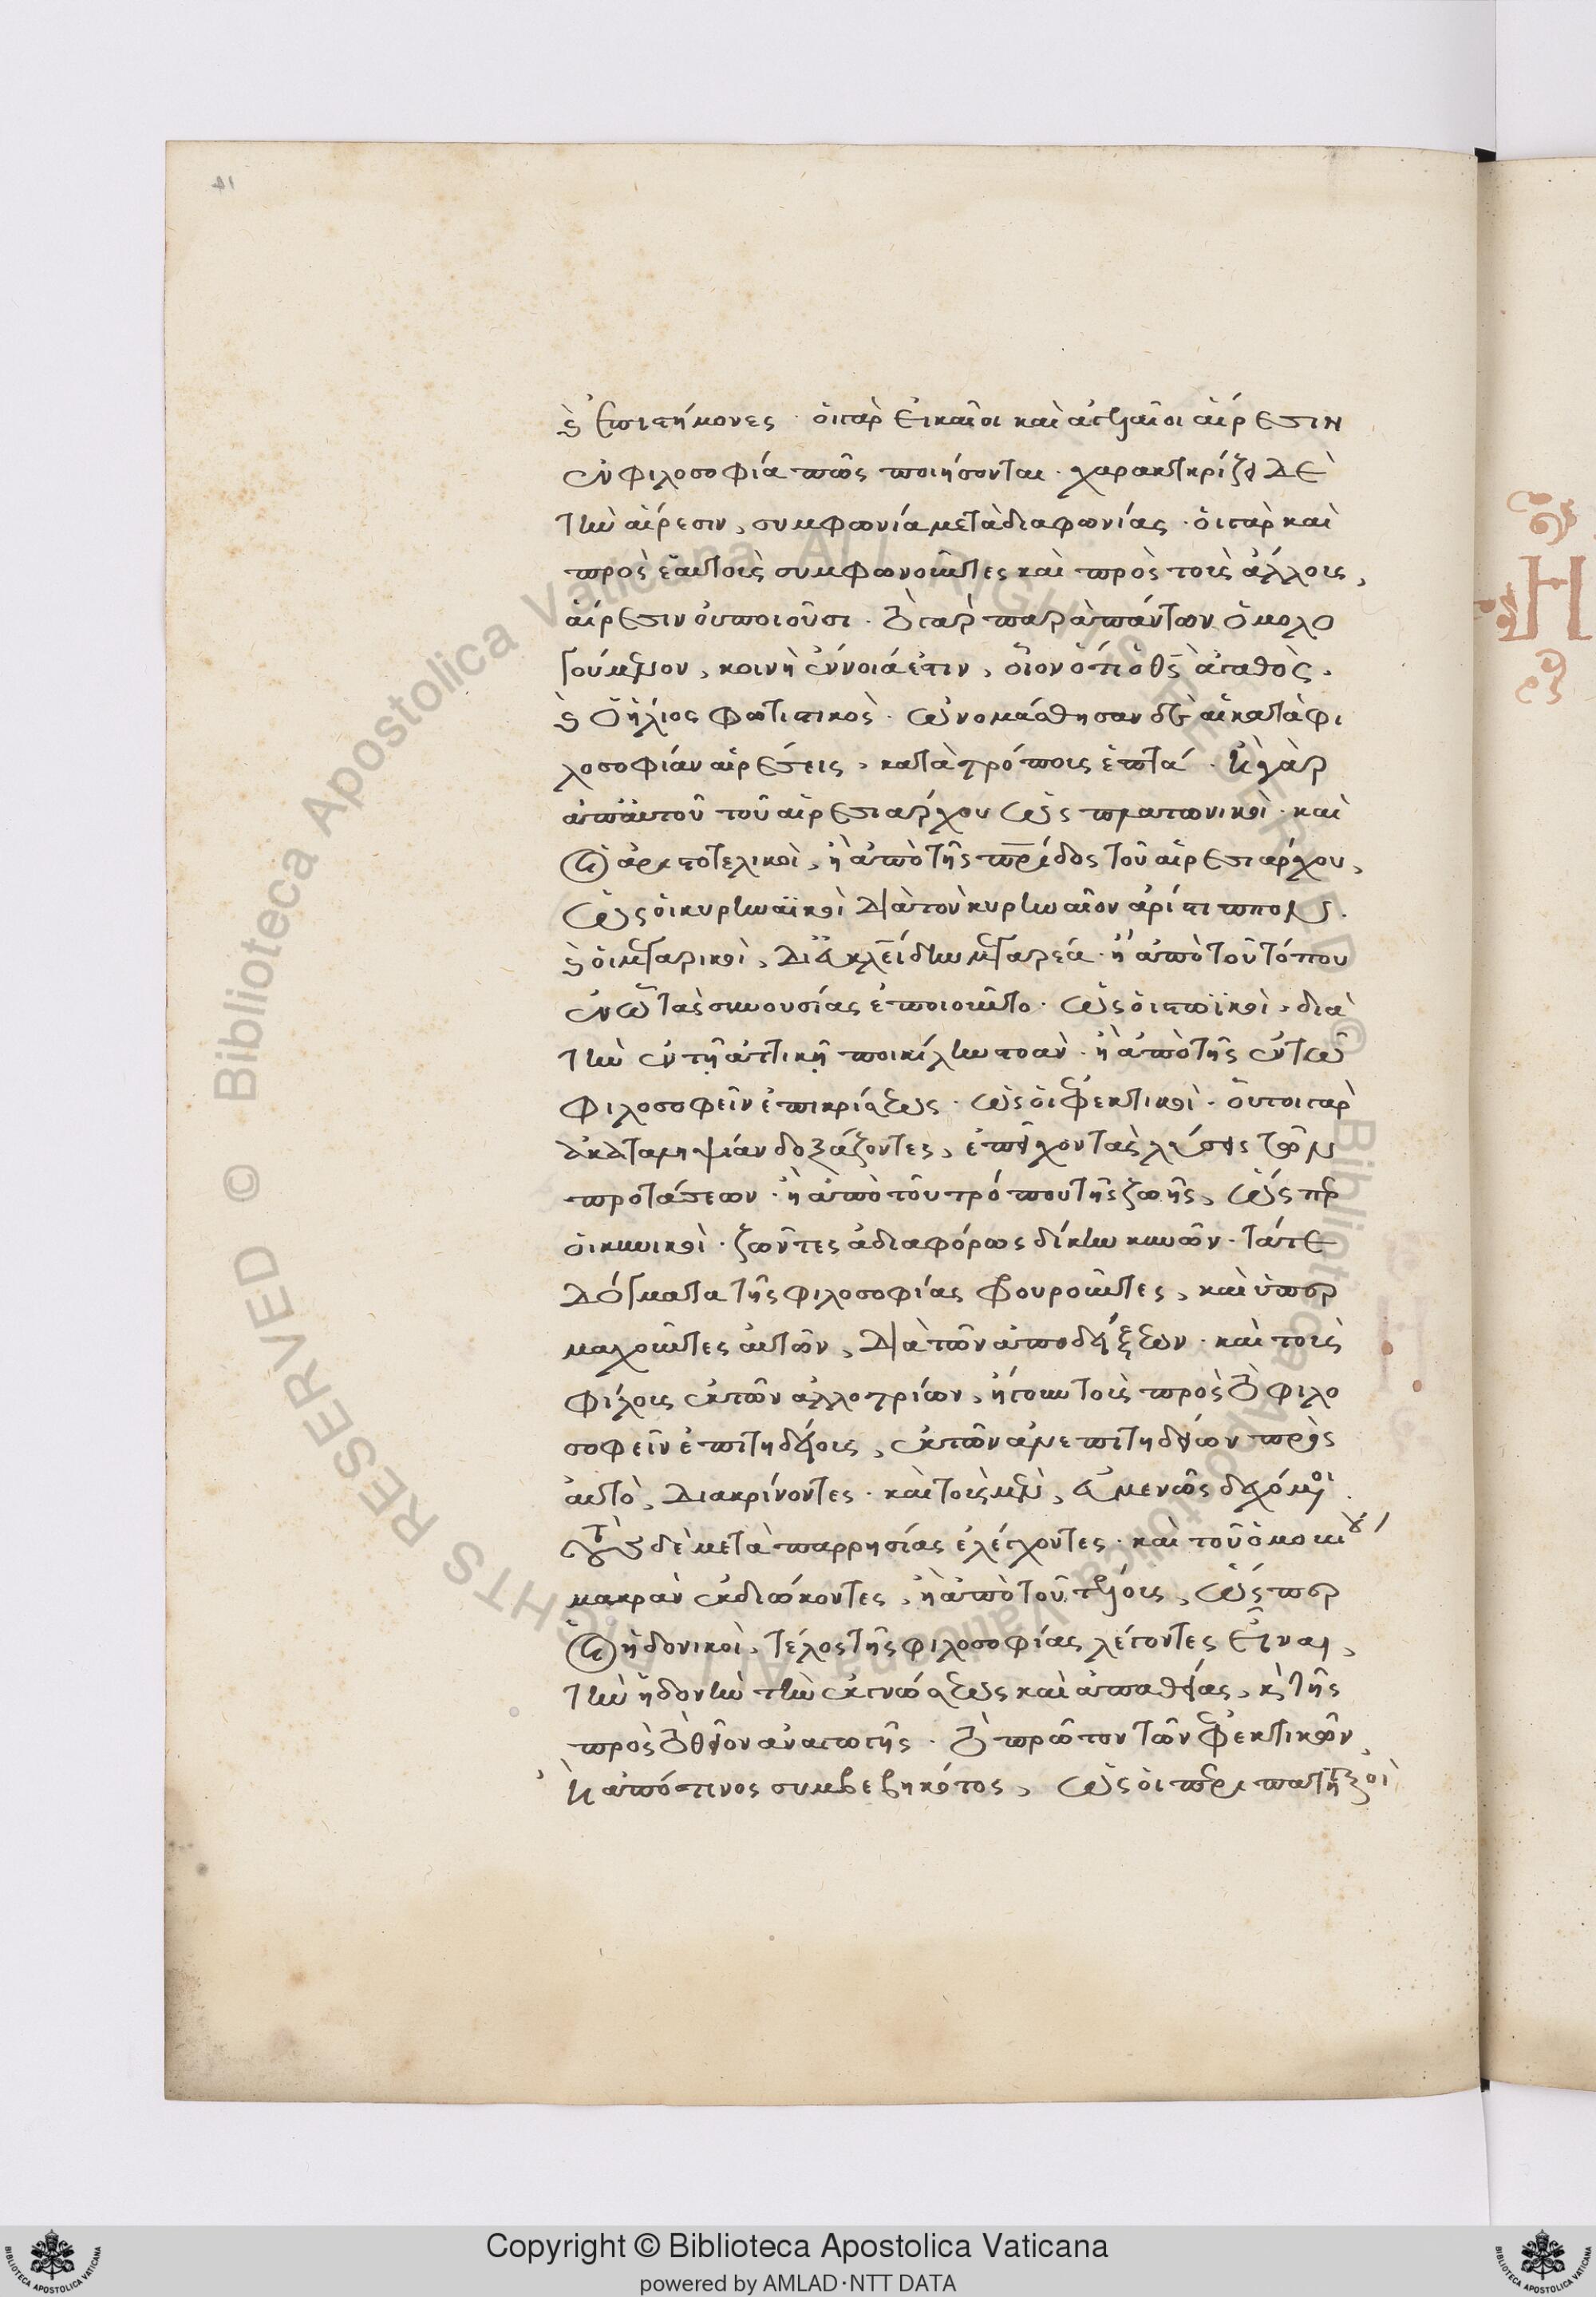 41
καὶ ἐπιστήμονες · οἱ γὰρ εἰκαῖοι καὶ ἀγελαῖοι αἵρεσιν
ἐν φιλοσοφία πῶς ποιήσονται · χαρακτηρίζει δὲ
τὴν αἵρεσιν, συμφωνία μετὰ διαφωνίας · οἱ γὰρ καὶ
πρὸς ἑαυτοὺς συμφωνοῦντες καὶ πρὸς τοὺς ἄλλους,
αἵρεσιν οὐ ποιοῦσι · τὸ γὰρ παρὰ πάντων ὁμολο
γούμενον, κοινὴ ἔννοιά ἐστιν, οἷον ὅτι ὁ θς ἀγαθὸς.
καὶ ὁ ἥλιος φωτιστικὸς · ὠνομάσθησαν δὲ αἱ κατὰ φι
λοσοφίαν αἱρέσεις, κατὰ τρόπους ἑπτά · ἢ γὰρ
ἀπ αὐτοῦ τοῦ αἱρεσιάρχου ὡς πλατωνικοὶ · καὶ
οἱ ἀριστοτελικοὶ, ἢ ἀπὸ τῆς πρίδος τοῦ αἱρεσιάρχου,
ὡς οἱ κυρηναϊκοὶ διὰ τὸν κυρηναῖον ἀρίστιππον.
καὶ οἱ μεγαρικοὶ, διὰ εὐκλείδην μεγαρέα · ἢ ἀπὸ τοῦ τόπου
ἐν ὧ τὰς συνουσίας ἐποιοῦντο · ὡς οἱ στωϊκοὶ, διὰ
τὴν ἐν τῇ ἀττικῇ ποικίλην στοὰν · ἢ ἀπὸ τῆς ἐν τῶ
φιλοσοφεῖν ἐπικρίσεως · ὡς οἱ ἐφεκτικοὶ · οὗτοι γὰρ
ἀκαταληψίαν δοξάζοντες, ἐπέχον τὰς λύσεις τῶν
προτάσεων · ἢ ἀπὸ τοῦ τρόπου τῆς ζωῆς, ὥσπερ
οἱ κυνικοὶ · ζῶντες ἀδιαφόρως δίκην κυνῶν · τά τε
δόγματα τῆς φιλοσοφίας φρουροῦντες, καὶ ὑπερ
μαχοῦντες αὐτῶν, διὰ τῶν ἀποδείξεων · καὶ τοὺς
φίλους ἐκ τῶν ἀλλοτρίων, ἤγουν τοὺς πρὸς τὸ φιλο
σοφεῖν ἐπιτηδείους, ἐκ τῶν ἀνεπιτηδείων πρὸς
αὐτὸ, διακρίνοντες · καὶ τοὺς μὲν, εὐμενῶς δεχόμενοι.
τοὺς δὲ μετὰ παρρησίας ἐλέγχοντες · καὶ τοῦ
μακρὰν ἐκδιώκοντες, ἢ ἀπὸ τοῦ τέλους, ὥσπερ
οἱ ἡδονικοὶ, τέλος τῆς φιλοσοφίας λέγοντες εἶναι,
τὴν ἡδονὴν τὴν ἐκ γνώσεως καὶ ἀπαθείας, καὶ τῆς
πρὸς τὸ θεῖον ἀναγωγῆς · τὸ πρῶτον τῶν ἐφεκτικῶν
ἢ ἀπό τινος συμβεβηκότος, ὡς οἱ περιπατητικοὶ